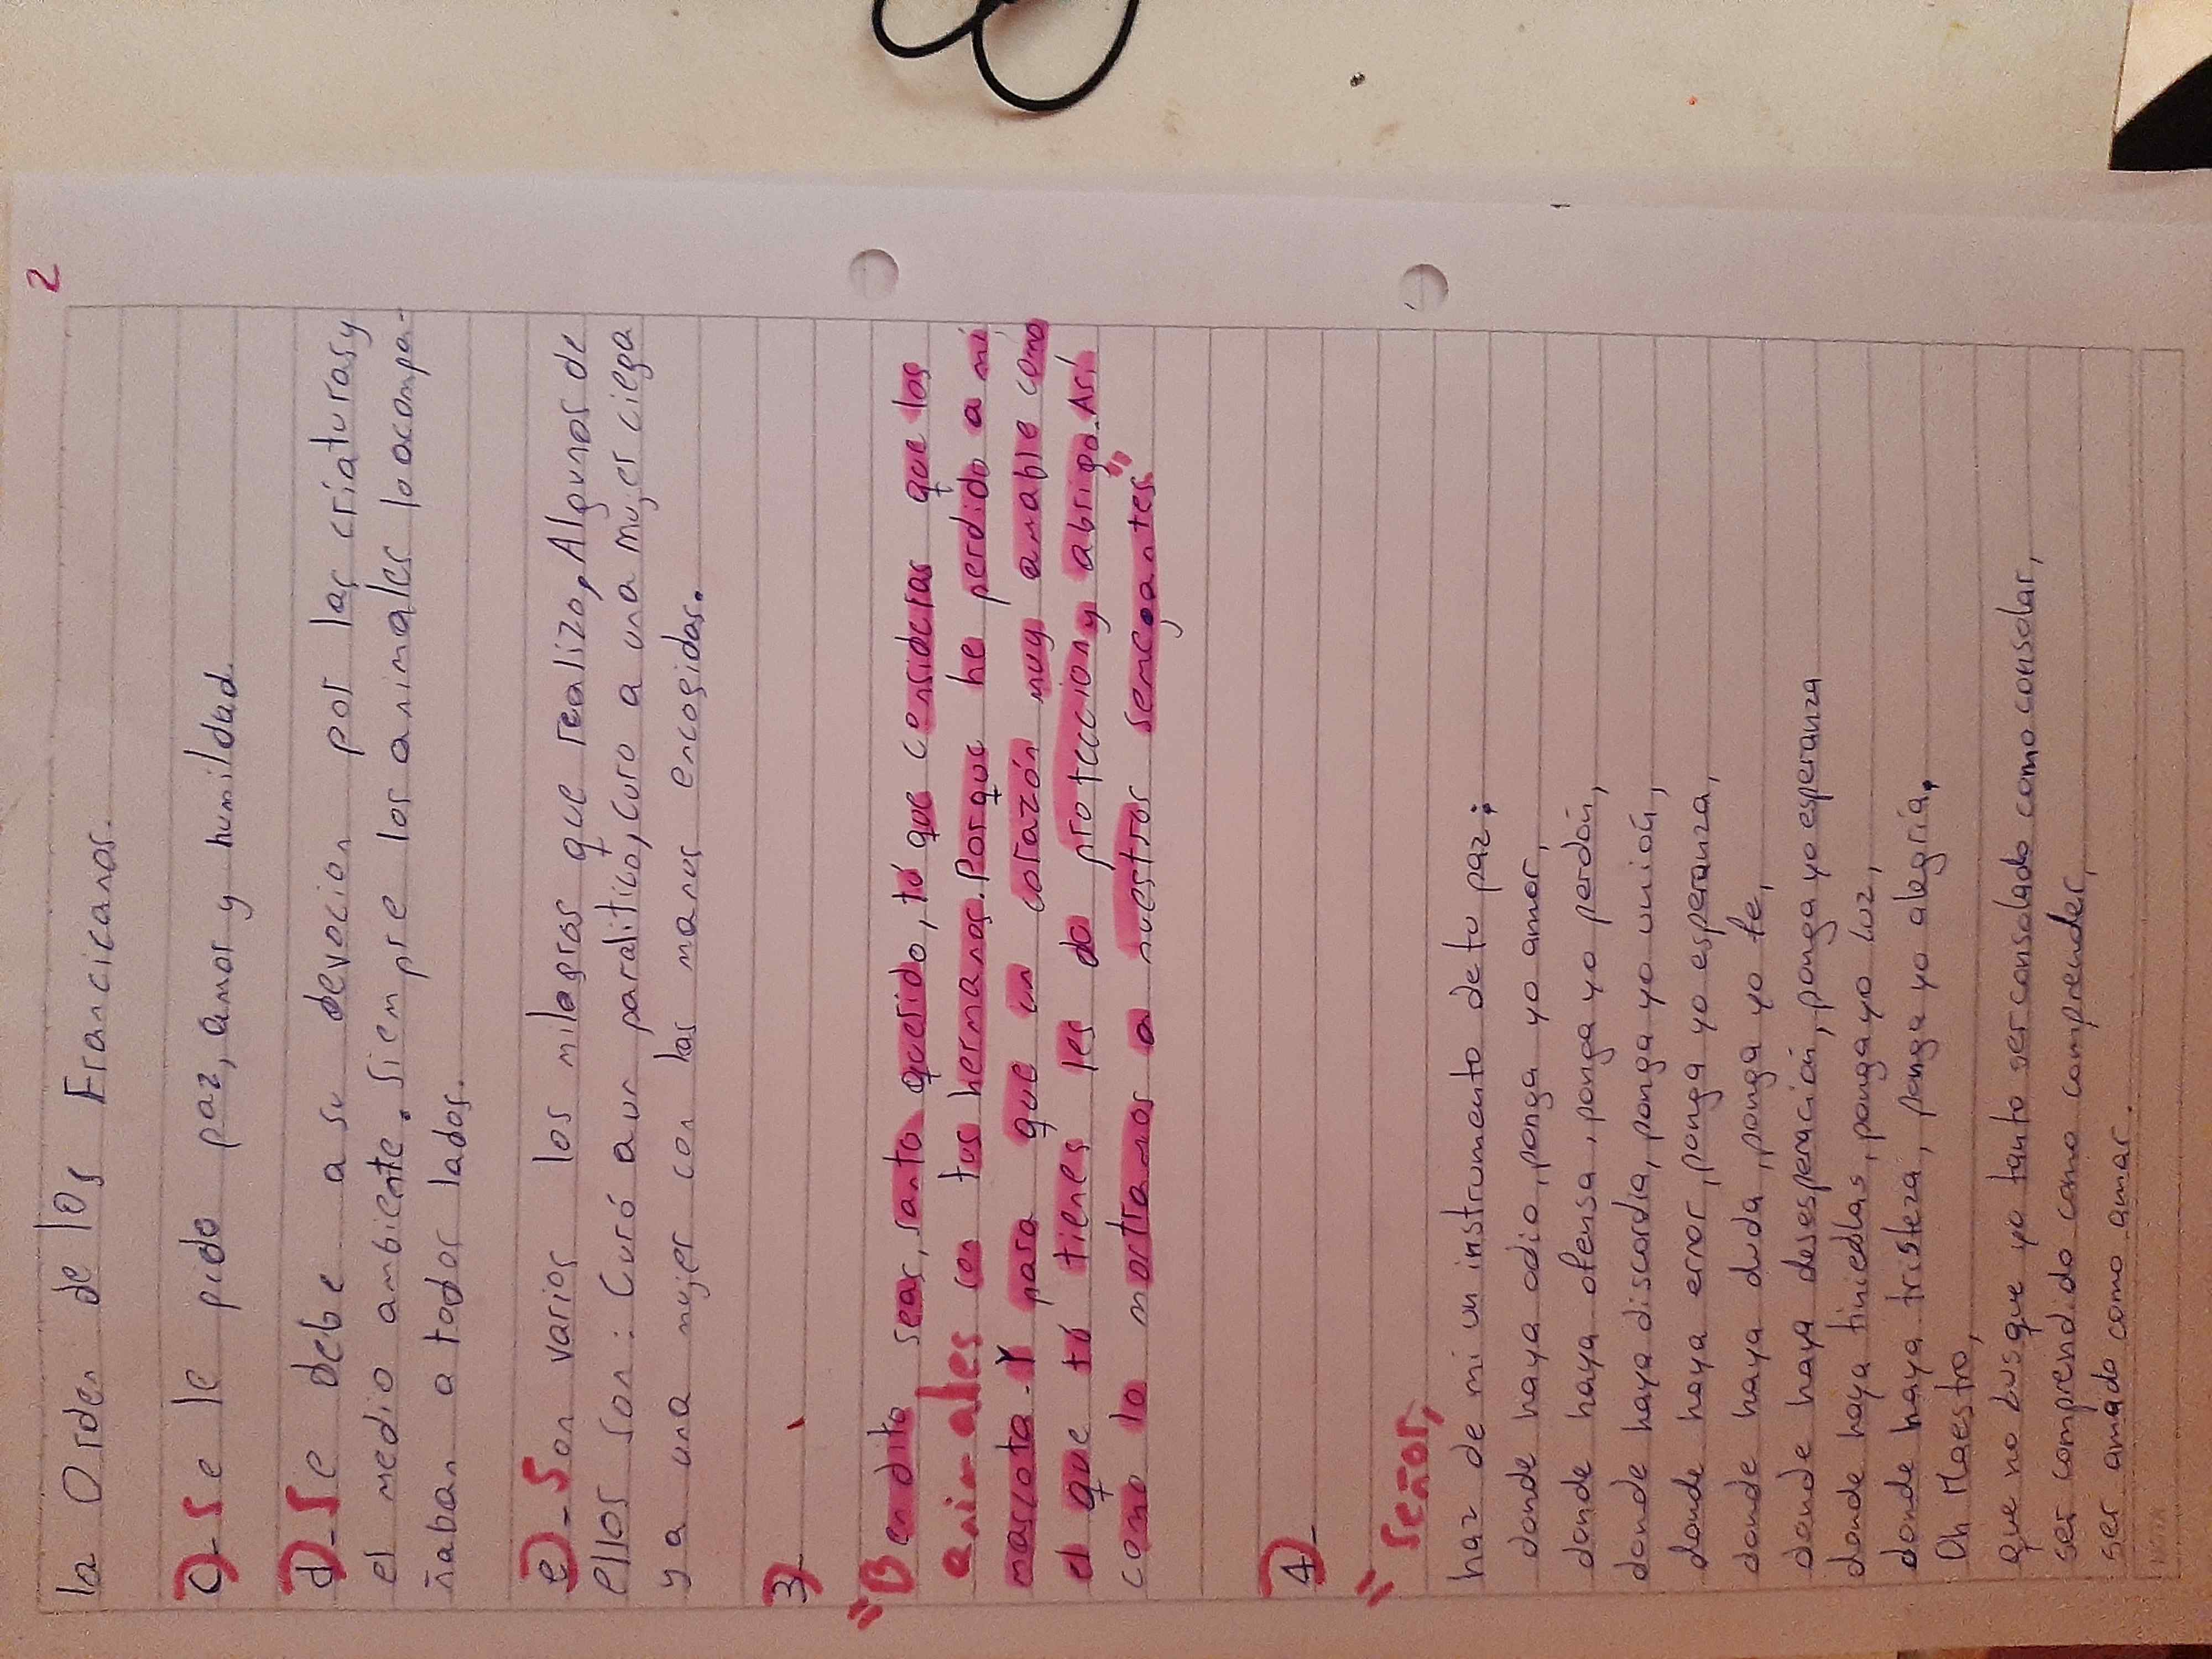 2
la Orden de los Francicanos.
c)-Se le pido paz, amor y humildad.
d)-Se debe a su devocion por las criaturas y
el medio ambiente. Siempre los animales lo acompa-
ñaban a todos lados.
e)-Son varios los milagros que realizo, Algunos de
ellos son: Curó a un paralitico, curo a una mujer ciega
y a una mujer con las manos encogidas.
3)
"Bendito seas, santo querido, tú que consideras que los
animales son tus hermanos. Porque he perdido a mi
mascota. Y para que un corazón muy amable como
el que tú tienes les do proteccion y abrigo. Así
como lo mostramos a nuestros semejantes."
4)-
"Señor,
haz de mi un instrumento de tu paz:
donde haya odio, ponga yo amor,
donde haya ofensa, ponga yo perdón,
donde haya discordia, ponga yo unión,
donde haya error, ponga yo esperanza,
donde haya duda, ponga yo fe,
donde haya desesperación, ponga yo esperanza
donde haya tinieblas, ponga yo luz,
donde haya tristeza, ponga yo alegría.
Oh Maestro,
que no busque yo tanto ser consolado como consolar,
ser comprendido como comprender,
ser amado como amar.